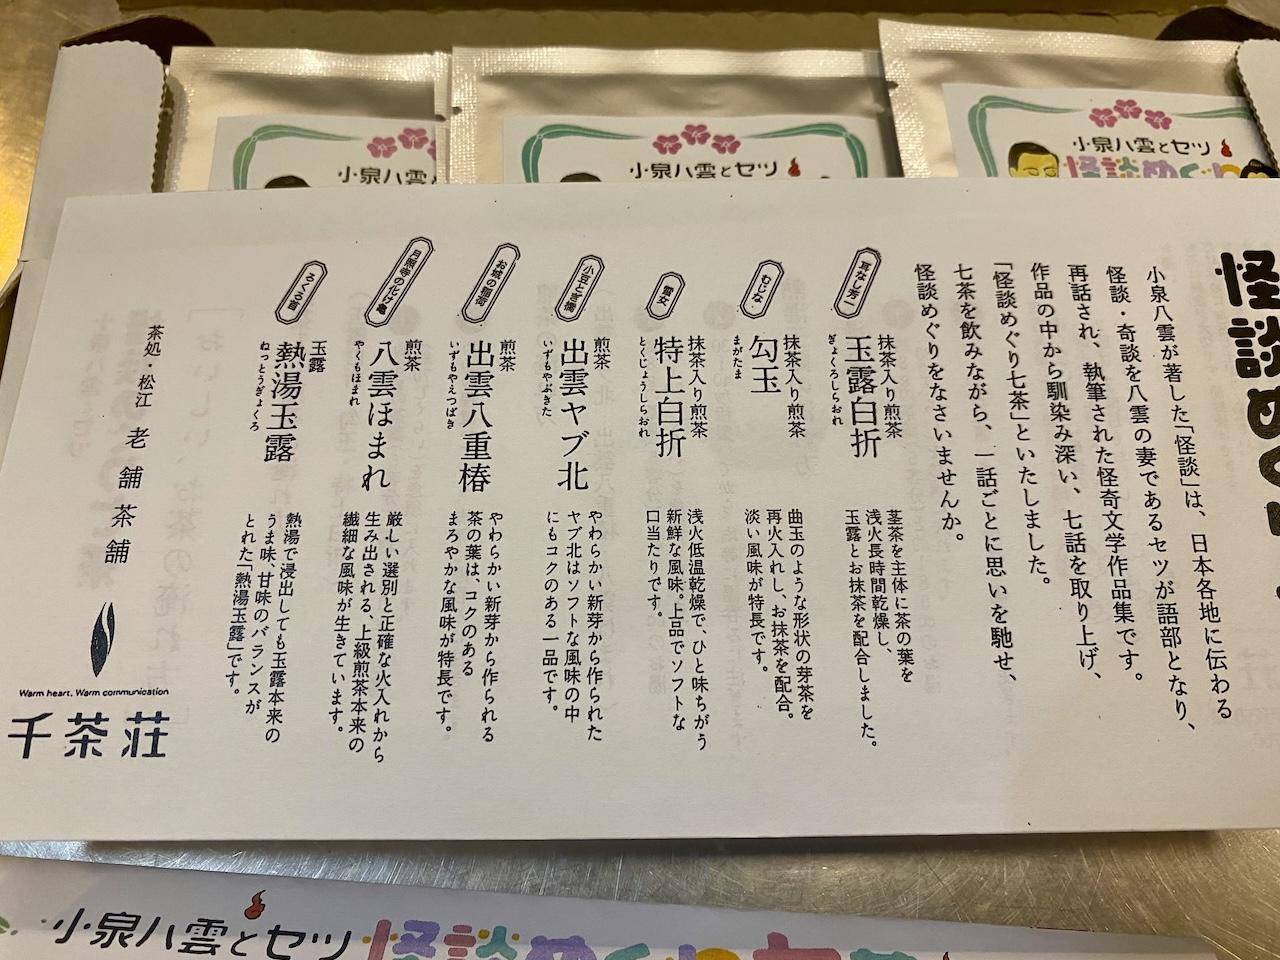 小泉八雲とセツ
小泉八雲とセツ
小泉八雲とセツ
怪談めぐり
怪談めぐり
小泉八雲が著した「怪談」は、日本各地に伝わる
怪談・奇談を八雲の妻であるセツが語部となり、
再話され、執筆された怪奇文学作品集です。
作品の中から馴染み深い、七話を取り上げ、
「怪談めぐり七茶」といたしました。
七茶を飲みながら、一話ごとに思いを馳せ、
怪談めぐりをなさいませんか。
耳なし芳一
抹茶入り煎茶
玉露白折
ぎょくろしらおれ
茎茶を主体に茶の葉を
浅火長時間乾燥し、
玉露とお抹茶を配合しました。
むじな
抹茶入り煎茶
勾玉
まがたま
曲玉のような形状の芽茶を
再火入れし、お抹茶を配合。
淡い風味が特長です。
雪女
抹茶入り煎茶
特上白折
とくじょうしらおれ
浅火低温乾燥で、ひと味ちがう
新鮮な風味。上品でソフトな
口当たりです。
小豆とぎ橋
煎茶
出雲ヤブ北
いずもやぶきた
やわらかい新芽から作られた
ヤブ北はソフトな風味の中
にもコクのある一品です。
お城の稲荷
煎茶
出雲八重椿
いずもやえつばき
やわらかい新芽から作られる
茶の葉は、コクのある
まろやかな風味が特長です。
月照寺の化け亀
煎茶
八雲ほまれ
やくもほまれ
厳しい選別と正確な火入れから
生み出される、上級煎茶本来の
繊細な風味が生きています。
ろくろ首
玉露
熱湯玉露
ねっとうぎょくろ
熱湯で浸出しても玉露本来の
うま味、甘味のバランスが
とれた「熱湯玉露」です。
茶処・松江 老舗茶舗
Warm heart, Warm communication
千茶荘
小泉八雲とセツ 怪談めぐり七茶